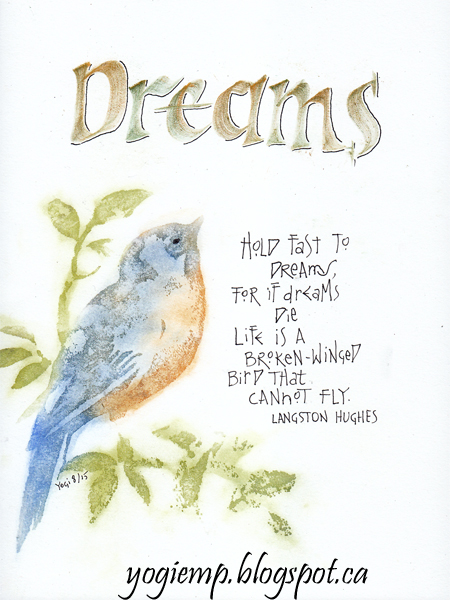 Dreams
HOLD FAST TO
DREAMS,
FOR IF dREAMS
DIE
LIFE IS A
BROKEN-WINGED
BIRD THAT
CANNOT FLY.
LANGSTON HUGHES
Yogi 8/15
yogiemp.blogspot.ca